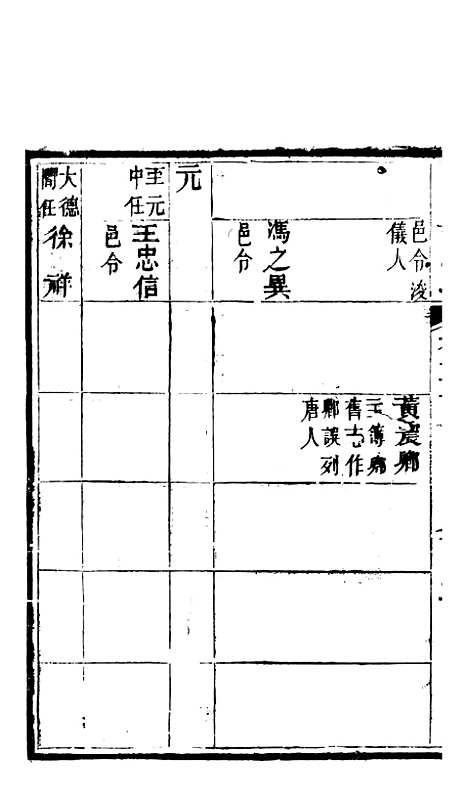 邑令浚
儀人
馮之異
邑令
黃震卿
主簿卿
舊志作
鄉誤列
唐人
元
至元
中任
王忠信
邑令
大德
間任
徐祥